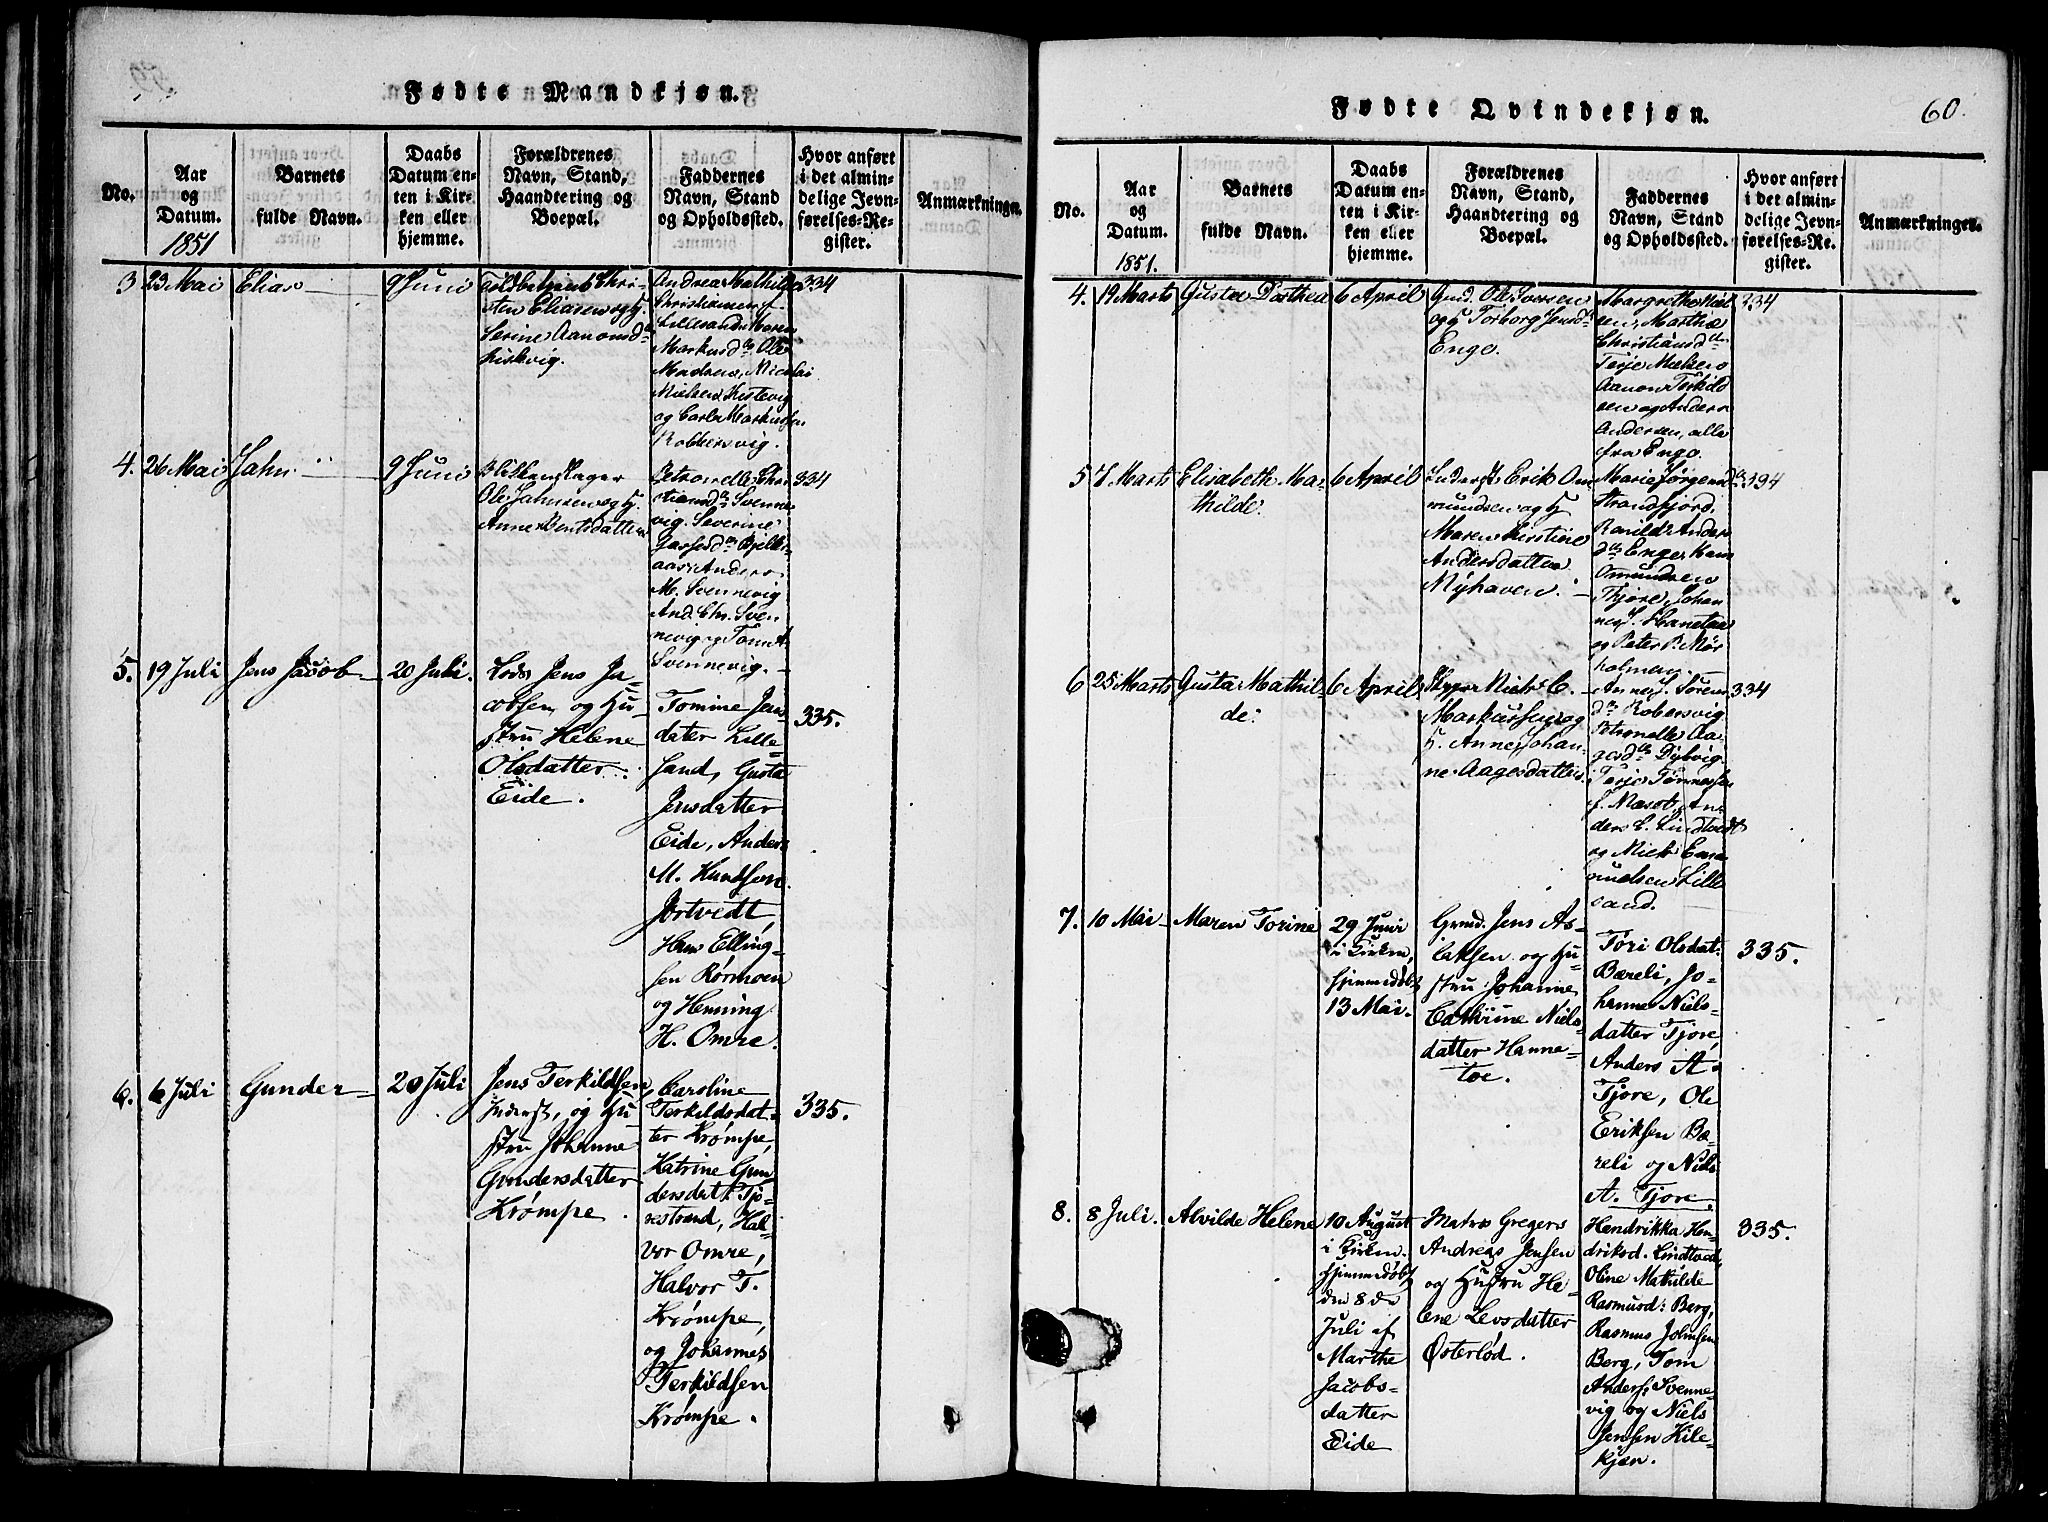 Fødte Mandkjøn.
No.
Aar
og
Datum.
1851
Barnets
fulde Navn.
Daabs
Datum en-
ten i Kir-
ken eller
hjemme.
Forældrenes
Navn, Stand,
Haandtering og
Boepæl.
Faddernes
Navn, Stand
og Opholdssted.
Hvor anført
i det almin-
delige Jevn-
førelses-Re-
gister.
Anmærkninger.
3
23 Mai
Elias
9 Juni
Chri-
sten Eliasen og H.
Serine Aanonsd
Andrea Mathilde
Christiansen f
Lillesand, Maren
Markusd Ole
Madsen, Nicolai
Nielsen Kistevig
og Carl Markussen
Robbersvig.
334
4.
26 Mai
Jahn
9 Juni
Blikkenslager
Ole Jahnsen og H.
Anne Berntsdatter
Petronelle Chri-
stiansd Svenne
vig. Severine
Anders
M. Svennevig
And. Chr. Sven
nevig og Tom A.
Svennevig.
334
5.
19 Juli
Jens Jacob
20 Juli.
Lods Jens Ja-
cobsen og Hu-
stru Helene
Olsdatter
Eide.
Tomine Jens
dater Lille-
sand, Gusta
Jensdatter
Eide, Anders
M. Knudsen
Jortvedt,
Hans Elling-
sen Rørmoen
og Henning
H. Omre.
335.
6.
6 Juli
Gunder
20 Juli
Jens Terkildsen
Inderst, og Hu
stru Johanne
Gundersdatter
Krømpe.
Caroline
Terkildsdat-
ter Krømpe,
Katrine Gun
dersdat. Tjø-
restrand, Hal-
vor Omre,
Halvor T.
Krømpe,
og Johannes
Terkildsen
Krømpe.
335.
Fødte Qvindekjøn.
60.
No.
Aar
og
Datum.
1851.
Barnets
fulde Navn.
Daabs
Datum en-
ten i Kir-
ken eller
hjemme.
Forældrenes
Navn, Stand,
Haandtering og
Boepæl.
Faddernes
Navn, Stand
og Opholdssted.
Hvor anført
i det almin-
delige Jevn-
førelses-Re-
gister.
Anmærkninger.
4.
19 Marts
Gusta Dorthea
6 April
Ole Iversen
og H Torborg Jensd
Enge.
Margrethe Niel
sen, Marthe
Christiansd
Terje Nielsen
Aanon Terkild
sen og Anders
Andersen, alle
fra Enge.
334
5
7 Marts
Elisabeth Ma-
thilde.
6 April
Inderst Erik Om
mundsen og H
Maren Kirstine
Andersdatter
Nyhaven.
Marie Jørgensd
Strandfjord,
Ranild Anders
d Enge, Hans
Omundsen
Tjøre, Johan
nes J. Hanetoe
og Peter P. Mør
holmen.
334
6
25 Marts
Gusta Mathil-
de.
6 April
Niels C.
Markussen og
H. Anne Johan-
ne Aagesdatter
Anne Sørens
d Robersvig
Petronelle Aa-
gesd Dybvig
Terje Tønnessen
f. Næset, An
ders C. Lindtvedt
og Niels Ema
nuelsen Lille
sand.
334
7.
10 Mai
Maren Torine
29 Juni
i Kirken,
hjemmedøbt
13 Mai.
Grmd. Jens As-
laksen og Hu-
stru Johanne
Cathrine Niels-
datter Hanne-
toe.
Tori Olsdat.
Bæreli, Jo-
hanne Niels-
datter Tjore,
Anders A.
Tjore, Ole
Eriksen Bæ-
reli og Niels
A. Tjore.
335.
8.
8 Juli.
Alvilde Helene
10 August
i Kirken.
hjemmedøbt
den 8de
Juli af
Marthe
Jacobs-
datter
Eide
Matros Gregers
Andreas Jensen
og Hustru He-
lene Levsdatter
Østerlød.
Hendrikka Hen
driksd. Lindtvedt,
Oline Mathilde
Rasmusd: Berg,
Rasmus Johnsen
Berg, Tom
Anders, Svenne-
vig og Niels
Jensen Kile-
kjæn.
335.